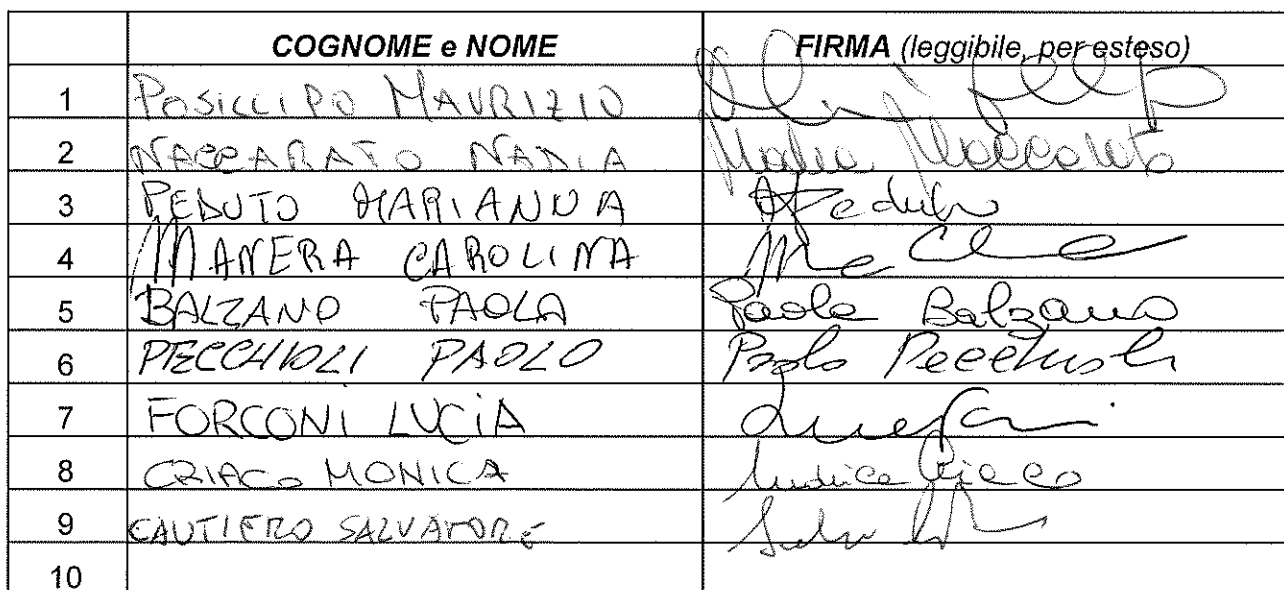 COGNOME e NOME FIRMA (leggibile, per esteso)
1 POSILLIPO MAURIZIO
2 NACCARATO NADIA Nadia Naccarato
3 PEDUTO MARIANNA MPeduto
4 MANERA CAROLINA
5 BALZANO PAOLA Paola Balzano
6 PECCHIOLI PAOLO Paolo Pecchioli
7 FORCONI LUCIA
8 CRIACO MONICA Monica Criaco
9 CAUTIERO SALVATORE
10